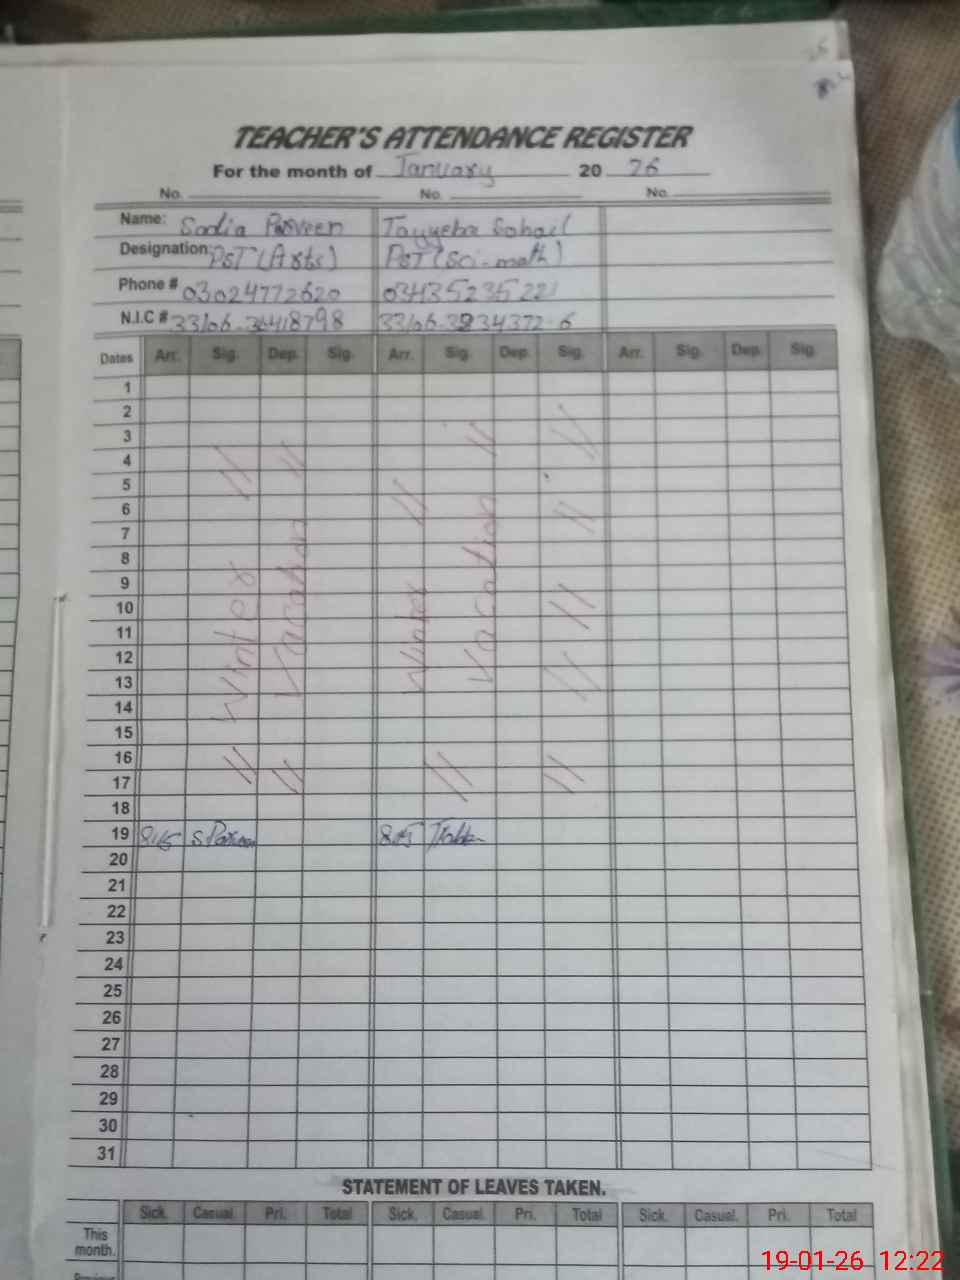 TEACHER'S ATTENDANCE REGISTER
For the month of January 2026
No. No. No.
Name: Sadia Parveen Tayyeba Sohail
Designation: PST (Arts) PST (Sci-math)
Phone # 03024772620 03435235221
N.I.C #
Dates Arr. Sig. Dep. Sig. Arr. Sig. Dep. Sig. Arr. Sig. Dep. Sig.
1
2
3
4
5
6
7
8
9
10
11
12
13
14
15
16
17
18
19 8:15 S Parveen 8:15
20
21
22
23
24
25
26
27
28
29
30
31
// Winter //
// Vacation //
Winter //
// Vacation //
// // // // //
STATEMENT OF LEAVES TAKEN.
Sick. Casual. Pri. Total Sick. Casual. Pri. Total Sick. Casual. Pri. Total
This
month.
19-01-26 12:22